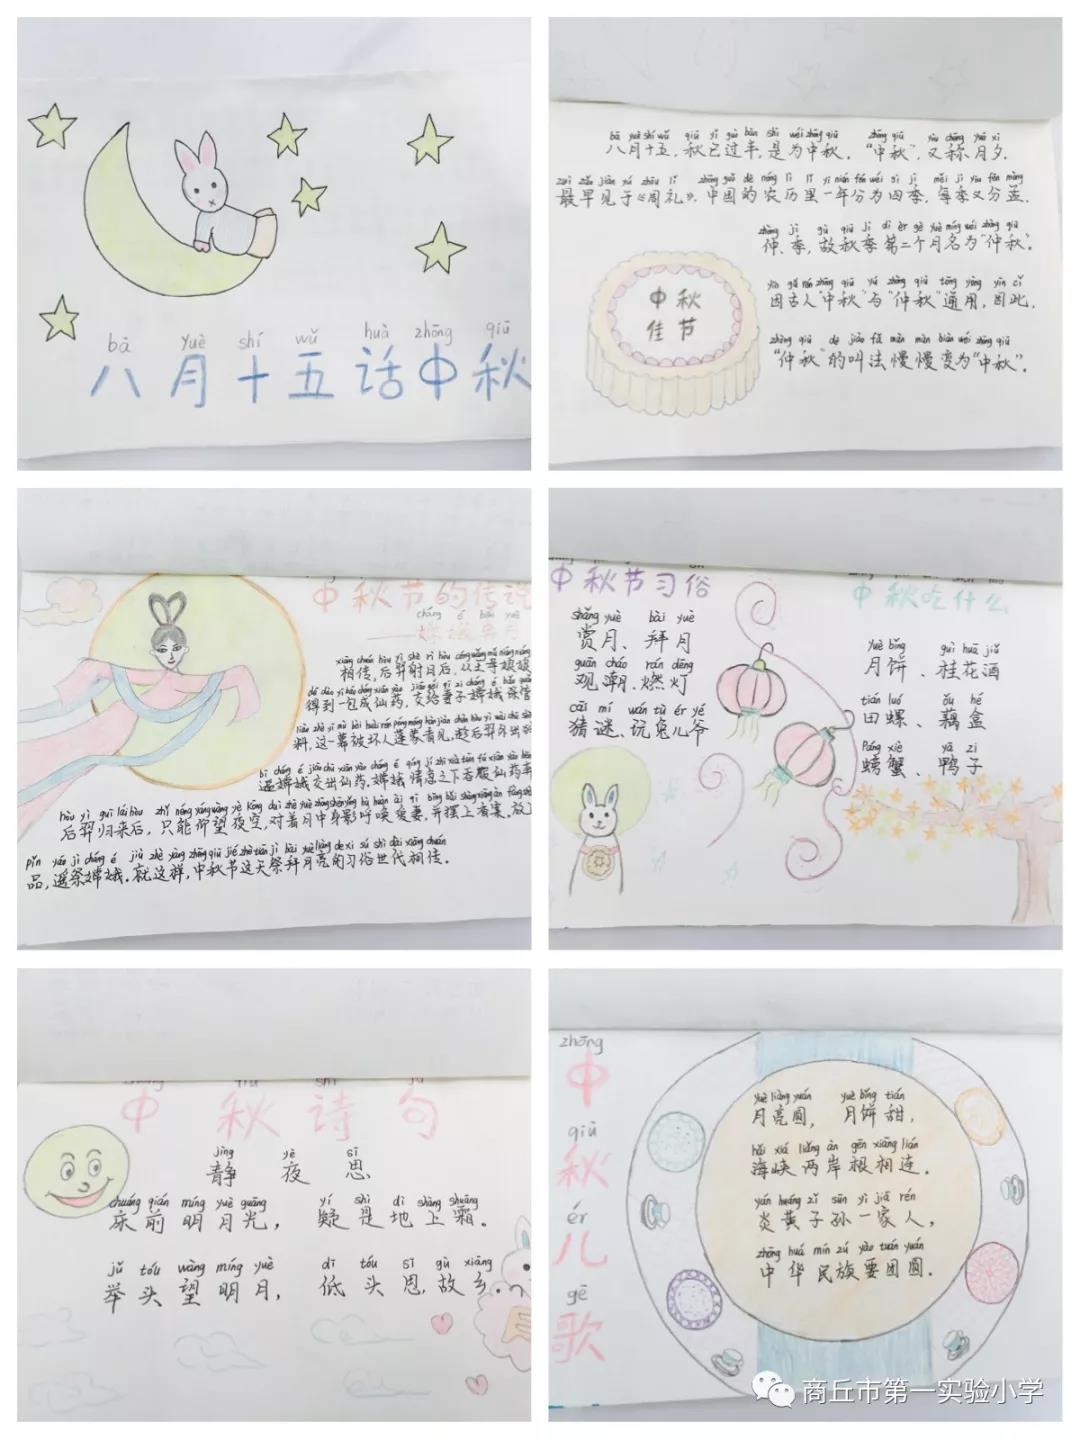 bā yuè shí wǔ huà zhōng qiū
八月十五话中秋
bā yuè shí wǔ qiū yǐ guò bàn shì wéi zhōng qiū zhōng qiū yòu chēng yuè xī
八月十五，秋已过半，是为中秋。“中秋”，又称月夕，
最早见于《周礼》。中国的农历里一年分为四季，每季又分孟、
仲、季，故秋季第二个月名为“仲秋”。
因古人“中秋”与“仲秋”通用，因此，
“仲秋”的叫法慢慢变为“中秋”。
中秋
佳节
中秋节的传说
——嫦娥奔月
相传，后羿射日后，从王母娘娘
得到一包成仙药，交给妻子嫦娥保管
料，这一幕被坏人蓬蒙看见，趁后羿外出
逼嫦娥交出仙药。嫦娥情急之下吞服仙药
后羿归来后，只能仰望夜空，对着月中身影呼唤爱妻，并摆上香案，放
品，遥祭嫦娥。就这样，中秋节这天祭拜月亮的习俗世代相传。
中秋节习俗
shǎng yuè bài yuè
赏月、拜月
guān cháo rán dēng
观潮、燃灯
cāi mí wán tù ér yé
猜谜、玩兔儿爷
中秋吃什么
yuè bǐng guì huā jiǔ
月饼、桂花酒
tián luó ǒu hé
田螺、藕盒
páng xiè yā zi
螃蟹、鸭子
中秋诗句
jìng yè sī
静夜思
chuáng qián míng yuè guāng yí shì dì shàng shuāng
床前明月光，疑是地上霜。
jǔ tóu wàng míng yuè dī tóu sī gù xiāng
举头望明月，低头思故乡。
zhōng
中
qiū
秋
ér
儿
gē
歌
yuè liàng yuán yuè bǐng tián
月亮圆，月饼甜，
hǎi xiá liǎng àn gēn xiāng lián
海峡两岸根相连。
yán huáng zǐ sūn yì jiā rén
炎黄子孙一家人，
zhōng huá mín zú yào tuán yuán
中华民族要团圆。
商丘市第一实验小学